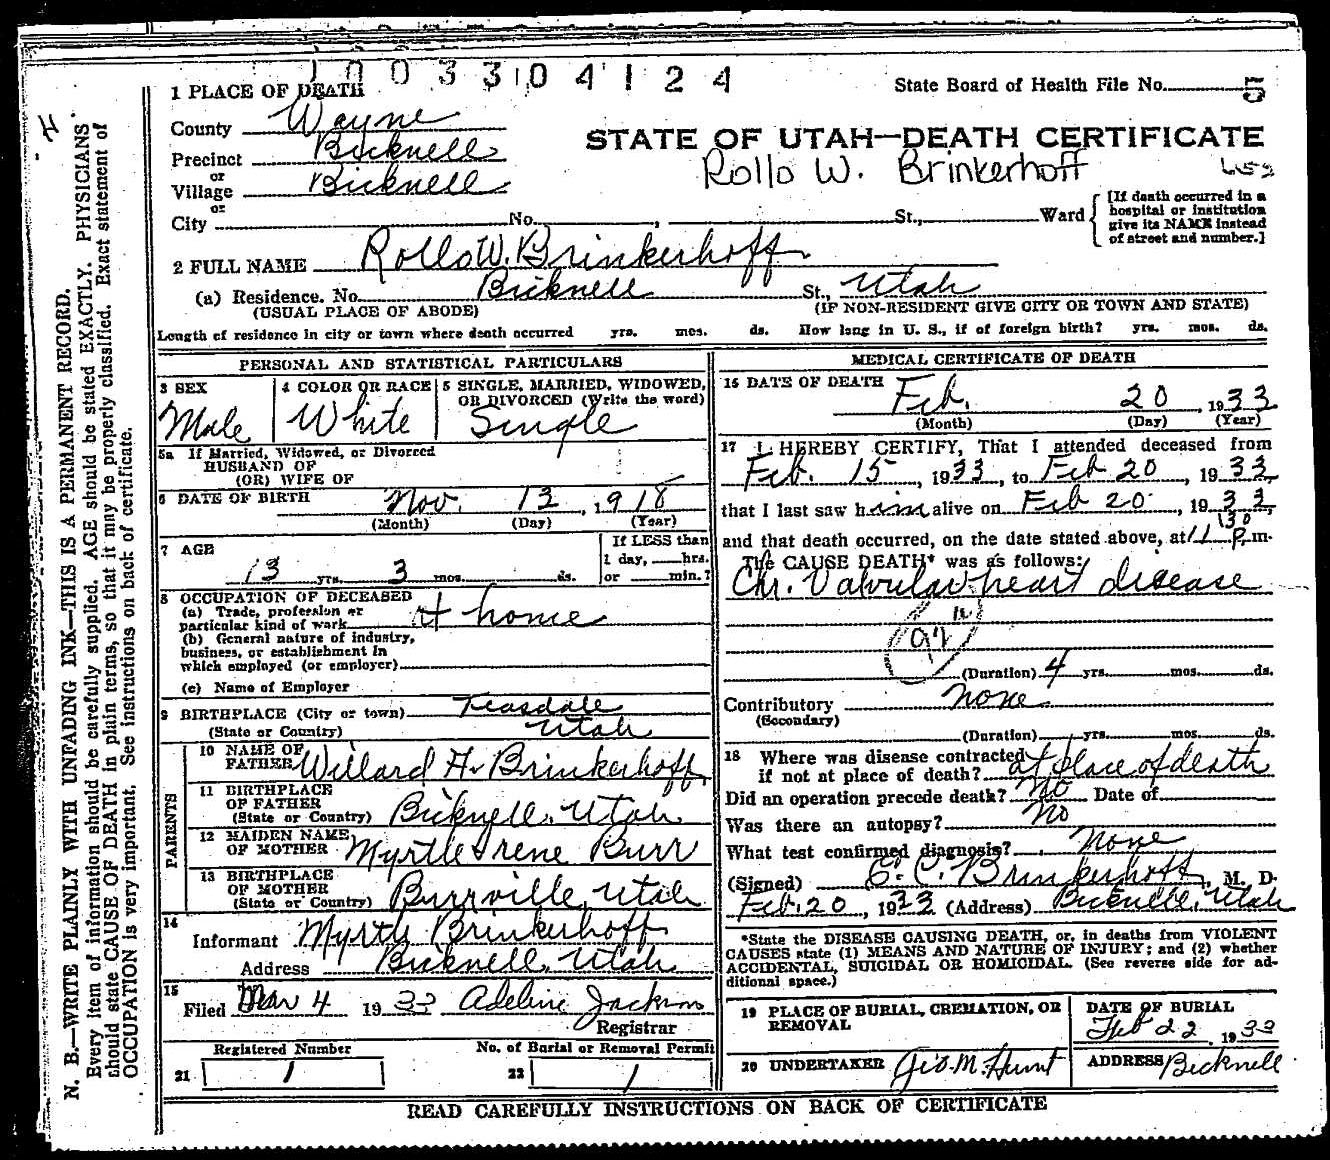 1003304124
State Board of Health File No. 5
1 PLACE OF DEATH
County Wayne
STATE OF UTAH—DEATH CERTIFICATE
Precinct Bicknell
Rollo W. Brinkerhoff
or
Village Bicknell
or
City No. , St., Ward
[If death occurred in a
hospital or institution
give its NAME instead
of street and number.]
2 FULL NAME Rollo W. Brinkerhoff
(a) Residence. No. Bicknell St., Utah
(USUAL PLACE OF ABODE) (IF NON-RESIDENT GIVE CITY OR TOWN AND STATE)
Length of residence in city or town where death occurred yrs. mos. ds. How long in U. S., if of foreign birth? yrs. mos. ds.
PERSONAL AND STATISTICAL PARTICULARS
3 SEX Male
4 COLOR OR RACE White
5 SINGLE, MARRIED, WIDOWED,
OR DIVORCED (Write the word)
Single
5a If Married, Widowed, or Divorced
HUSBAND OF
(OR) WIFE OF
6 DATE OF BIRTH Nov. 13, 1918
(Month) (Day) (Year)
7 AGE
13 yrs. 3 mos. ds.
If LESS than
1 day, hrs.
or min.?
8 OCCUPATION OF DECEASED
(a) Trade, profession or
particular kind of work At home
(b) General nature of industry,
business, or establishment in
which employed (or employer)
(c) Name of Employer
9 BIRTHPLACE (City or town) Teasdale
(State or Country) Utah
PARENTS
10 NAME OF
FATHER Willard H. Brinkerhoff
11 BIRTHPLACE
OF FATHER
(State or Country) Bicknell, Utah
12 MAIDEN NAME
OF MOTHER Myrtle Irene Burr
13 BIRTHPLACE
OF MOTHER
(State or Country) Burrville, Utah
14
Informant Myrtle Brinkerhoff
Address Bicknell, Utah
15
Filed Mar 4 1933 Adeline Jackson
Registrar
Registered Number
21 1
No. of Burial or Removal Permit
22 1
MEDICAL CERTIFICATE OF DEATH
16 DATE OF DEATH Feb. 20, 1933
(Month) (Day) (Year)
17 I HEREBY CERTIFY, That I attended deceased from
Feb. 15, 1933, to Feb 20, 1933,
that I last saw him alive on Feb 20, 1933,
and that death occurred, on the date stated above, at 11 30 P.m.
The CAUSE DEATH* was as follows:
Chr. Valvular heart disease
(Duration) 4 yrs. mos. ds.
Contributory None
(Secondary)
(Duration) yrs. mos. ds.
18 Where was disease contracted
if not at place of death? at place of death
Did an operation precede death? No Date of
Was there an autopsy? No
What test confirmed diagnosis? None
(Signed) E. C. Brinkerhoff, M. D.
Feb. 20, 1933 (Address) Bicknell, Utah
*State the DISEASE CAUSING DEATH, or, in deaths from VIOLENT
CAUSES state (1) MEANS AND NATURE OF INJURY; and (2) whether
ACCIDENTAL, SUICIDAL OR HOMICIDAL. (See reverse side for ad-
ditional space.)
19 PLACE OF BURIAL, CREMATION, OR
REMOVAL
DATE OF BURIAL
Feb 22, 1933
20 UNDERTAKER Geo. M. Hunt
ADDRESS Bicknell
READ CAREFULLY INSTRUCTIONS ON BACK OF CERTIFICATE
N. B.—WRITE PLAINLY WITH UNFADING INK—THIS IS A PERMANENT RECORD.
Every item of information should be carefully supplied. AGE should be stated EXACTLY. PHYSICIANS
should state CAUSE OF DEATH in plain terms, so that it may be properly classified. Exact statement of
OCCUPATION is very important. See instructions on back of certificate.